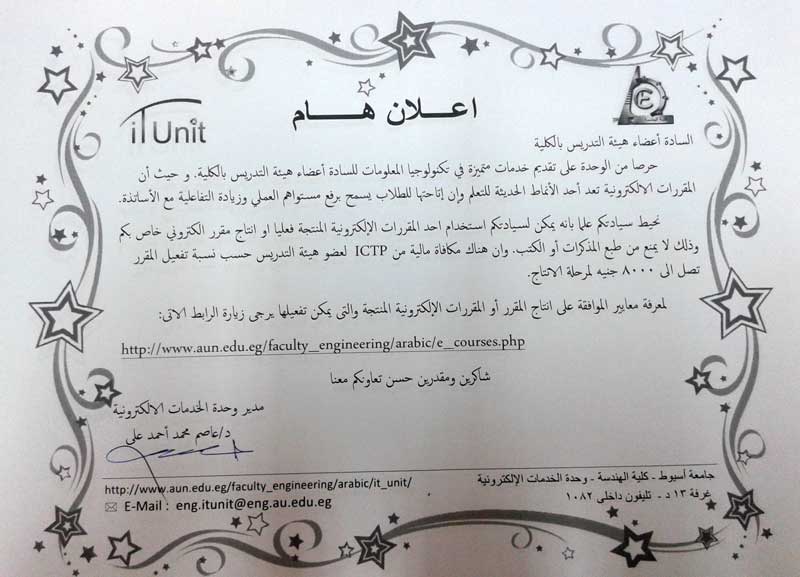 iT Unit
اعلان هـــام
السادة أعضاء هيئة التدريس بالكلية
حرصا من الوحدة على تقديم خدمات متميزة في تكنولوجيا المعلومات للسادة أعضاء هيئة التدريس بالكلية. و حيث أن
المقررات الالكترونية تعد أحد الأنماط الحديثة للتعلم وإن إتاحتها للطلاب يسمح برفع مستواهم العملي وزيادة التفاعلية مع الأساتذة.
نحيط سيادتكم علما بانه يمكن لسيادتكم استخدام احد المقررات الإلكترونية المنتجة فعليا او انتاج مقرر الكتروني خاص بكم
وذلك لا يمنع من طبع المذكرات أو الكتب. وان هناك مكافاة مالية من ICTP لعضو هيئة التدريس حسب نسبة تفعيل المقرر
تصل الى ٨٠٠٠ جنيه لمرحلة الانتاج.
لمعرفة معايير الموافقة على انتاج المقرر أو المقررات الإلكترونية المنتجة والتى يمكن تفعيلها يرجى زيارة الرابط الاتى:
http://www.aun.edu.eg/faculty_engineering/arabic/e_courses.php
شاكرين ومقدرين حسن تعاونكم معنا
مدير وحدة الخدمات الالكترونية
د/عاصم محمد أحمد على
جامعة أسيوط - كلية الهندسة - وحدة الخدمات الإلكترونية
http://www.aun.edu.eg/faculty_engineering/arabic/it_unit/
غرفة ١٣ د - تليفون داخلى ١٠٨٢
E-Mail : eng.itunit@eng.au.edu.eg